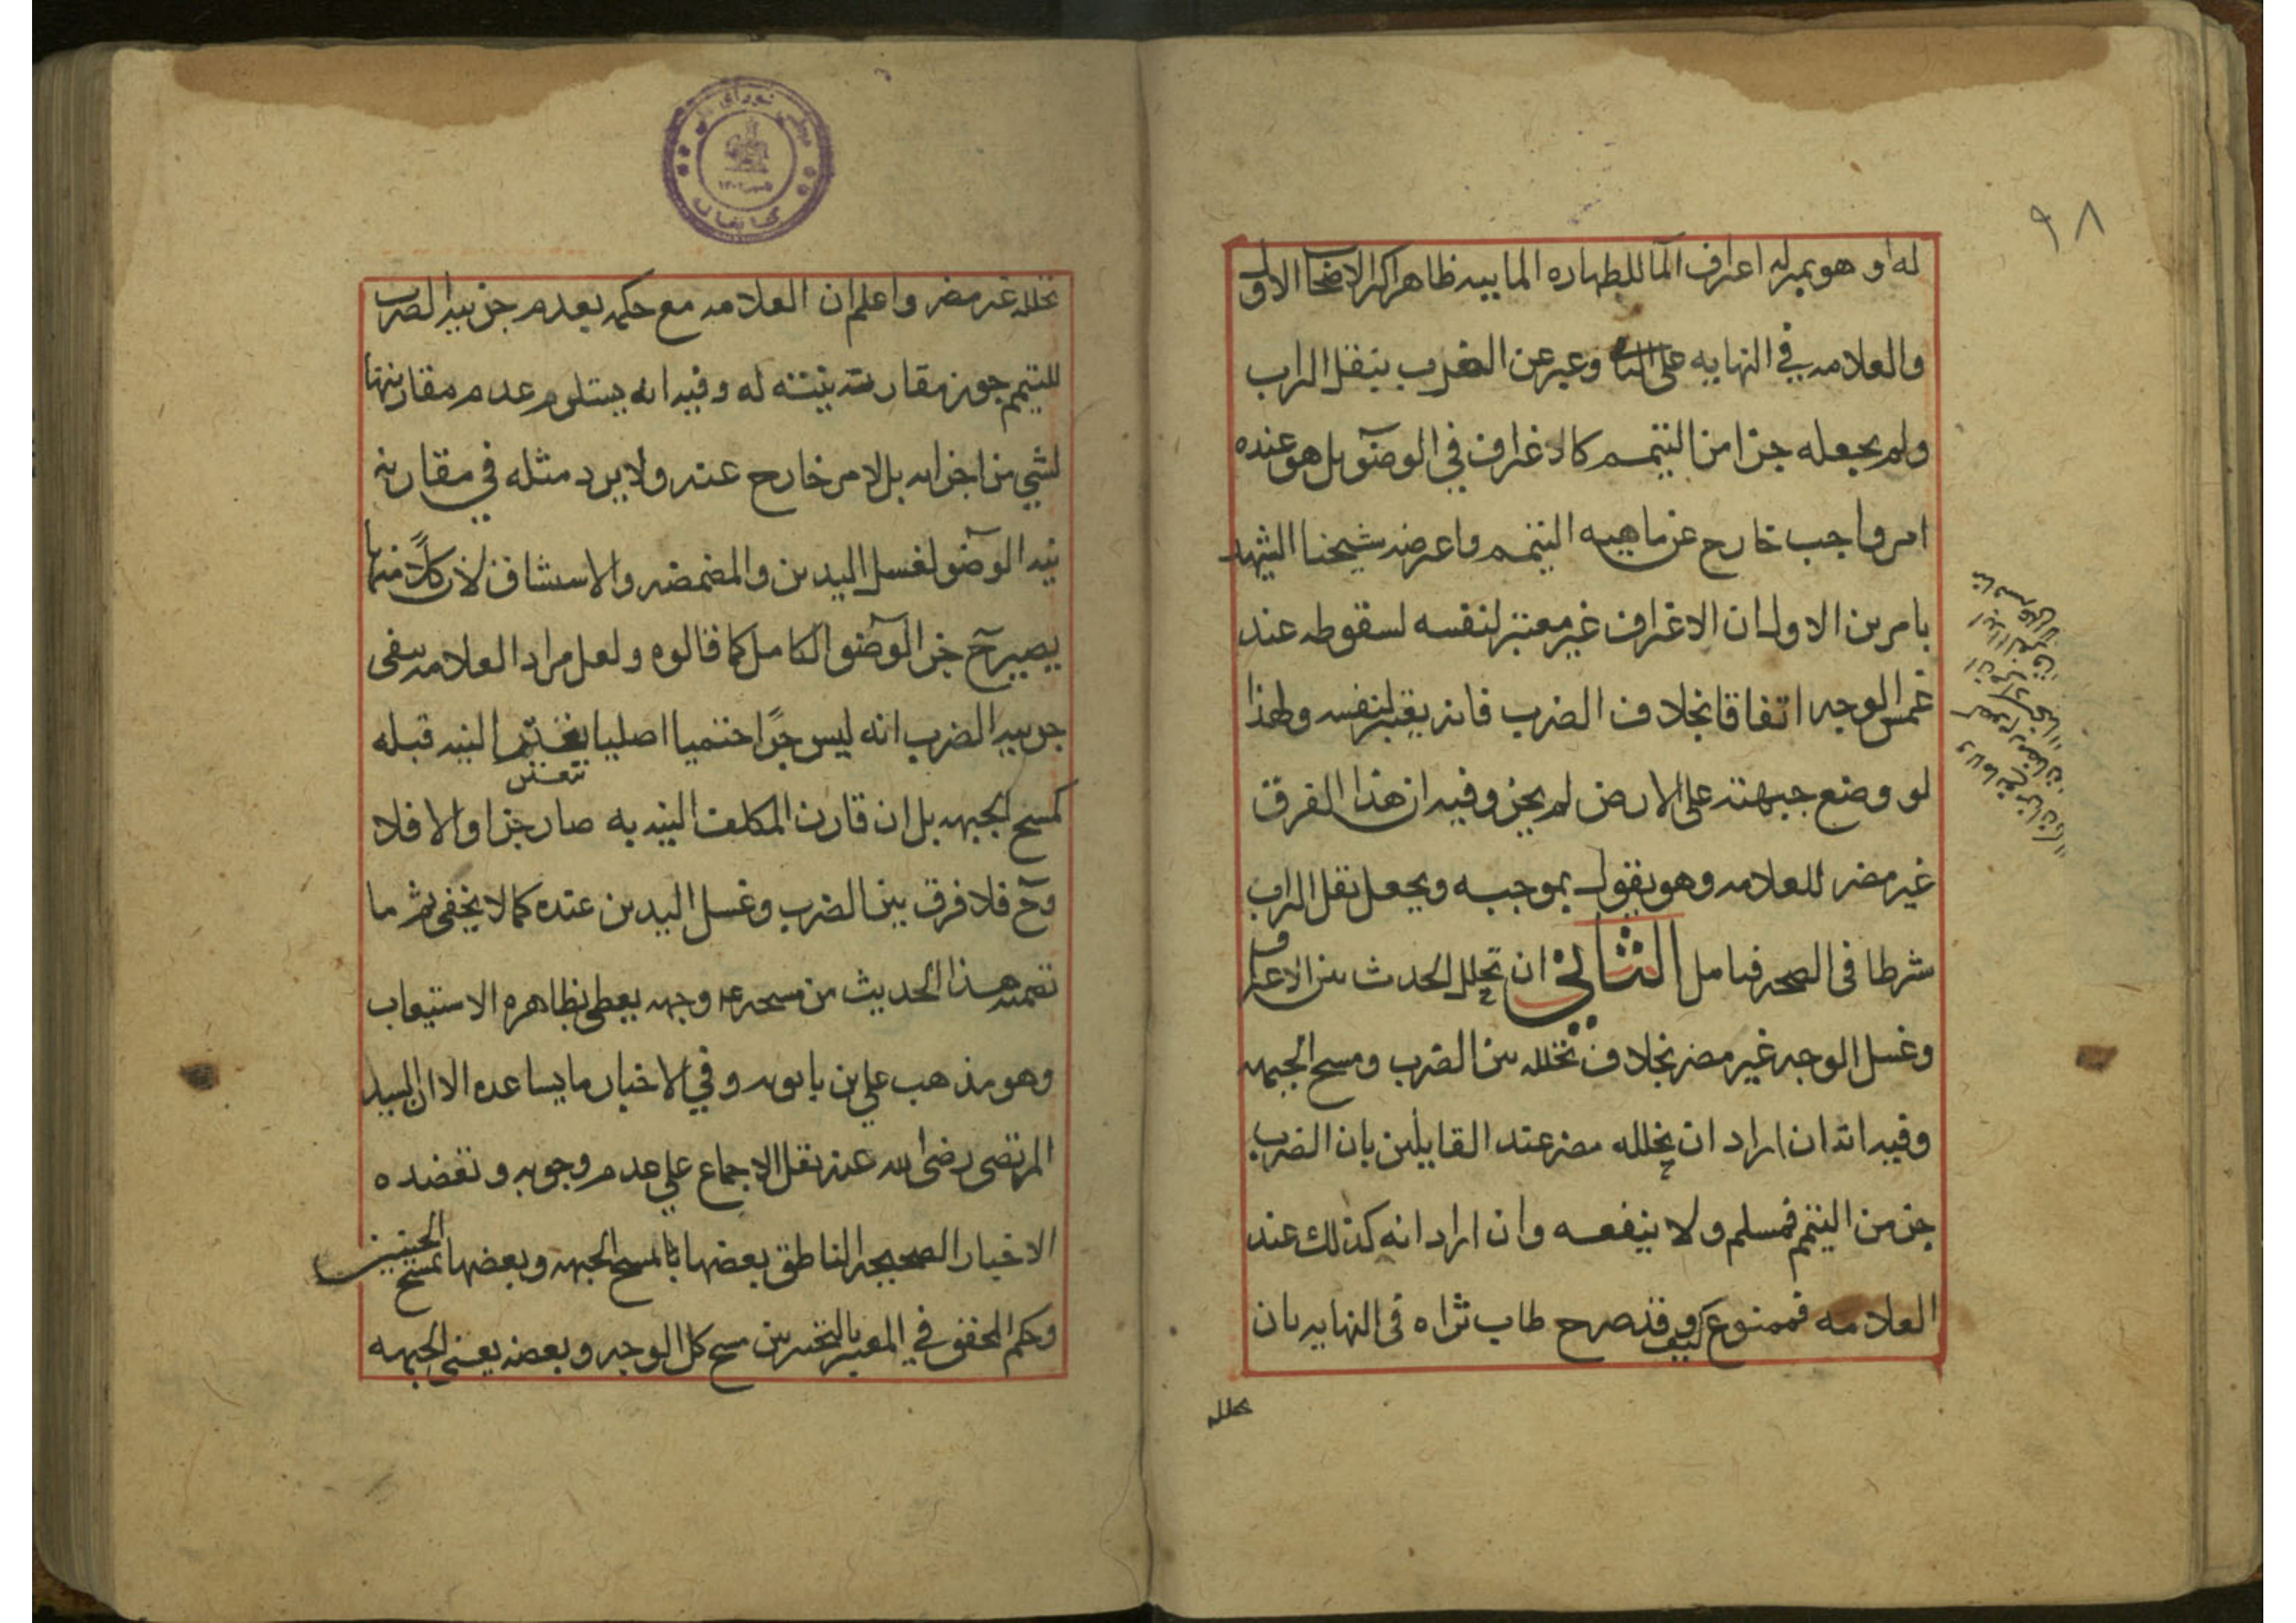 ٩٨
له او هو بمنزله اغتراف المآ للطهاره المابيه ظاهر اكثر الاصحاب الاول
والعلامه في النهايه على وعبر عن الضرب بنقل التراب
ولم يجعله جزا من التيمم كالاغتراف في الوضوٓ بل هو عنده
امر واجب خارج عن ماهيه التيمم واعترضه شيخنا الشهيد
بامرين الاول ان الاغتراف غير معتبر لنفسه لسقوطه عند
غمس الوجه اتفاقا بخلاف الضرب فانه يعتبر لنفسه ولهذا
لو وضع جبهته على الارض لم يجز وفيه ان هذا الفرق
غير مضر للعلامه وهو يقول بموجبه ويجعل نقل التراب
شرطا في الصحه فتامل الثاني ان تخلل الحدث بين الاغتراف
وغسل الوجه غير مضر بخلاف تخلله بين الضرب ومسح الجبهه
وفيه انه ان اراد ان تخلله مضر عند القايلين بان الضرب
جزء من التيمم فمسلم ولا ينفعه وان اراد انه كذلك عند
العلامه فممنوع كيف وقد صرح طاب ثراه في النهايه بان
تخلله
تخلله غير مضر واعلم ان العلامه مع حكمه بعدم جزئيه الضرب
للتيمم جوز مقارنته نيته له وفيه انه يستلزم عدم مقارنتها
لشي من اجزائه بل لامر خارج عنه ولا يرد مثله في مقارنه
نيه الوضوٓ لغسل اليدين والمضمضه والاستنشاق لان كلاً منها
يصير ح جزا الوضوٓ الكامل كما قالوه ولعل مراد العلامه بنفى
جزئيه الضرب انه ليس جزًا حتميا اصليا النيه قبله
تتعين
كمسح الجبهه بل ان قارن المكلف النيه به صار جزا والا فلا
وح فلا فرق بين الضرب وغسل اليدين عنده كما لا يخفى ثم ما
تضمنه هذا الحديث من مسحه ع وجهه يعطى بظاهره الاستيعاب
وهو مذهب علي بن بابويه وفي الاخبار ما يساعده الا ان السيد
المرتضى رضى الله عنه نقل الاجماع على عدم وجوبه وتعضده
الاخبار الصحيحه الناطق بعضها بالمسح الجبهه وبعضها بمسح الجبينين
وحكم المحقق في المعتبر بالتخيير بين مسح كل الوجه وبعضه يعنى الجبهه